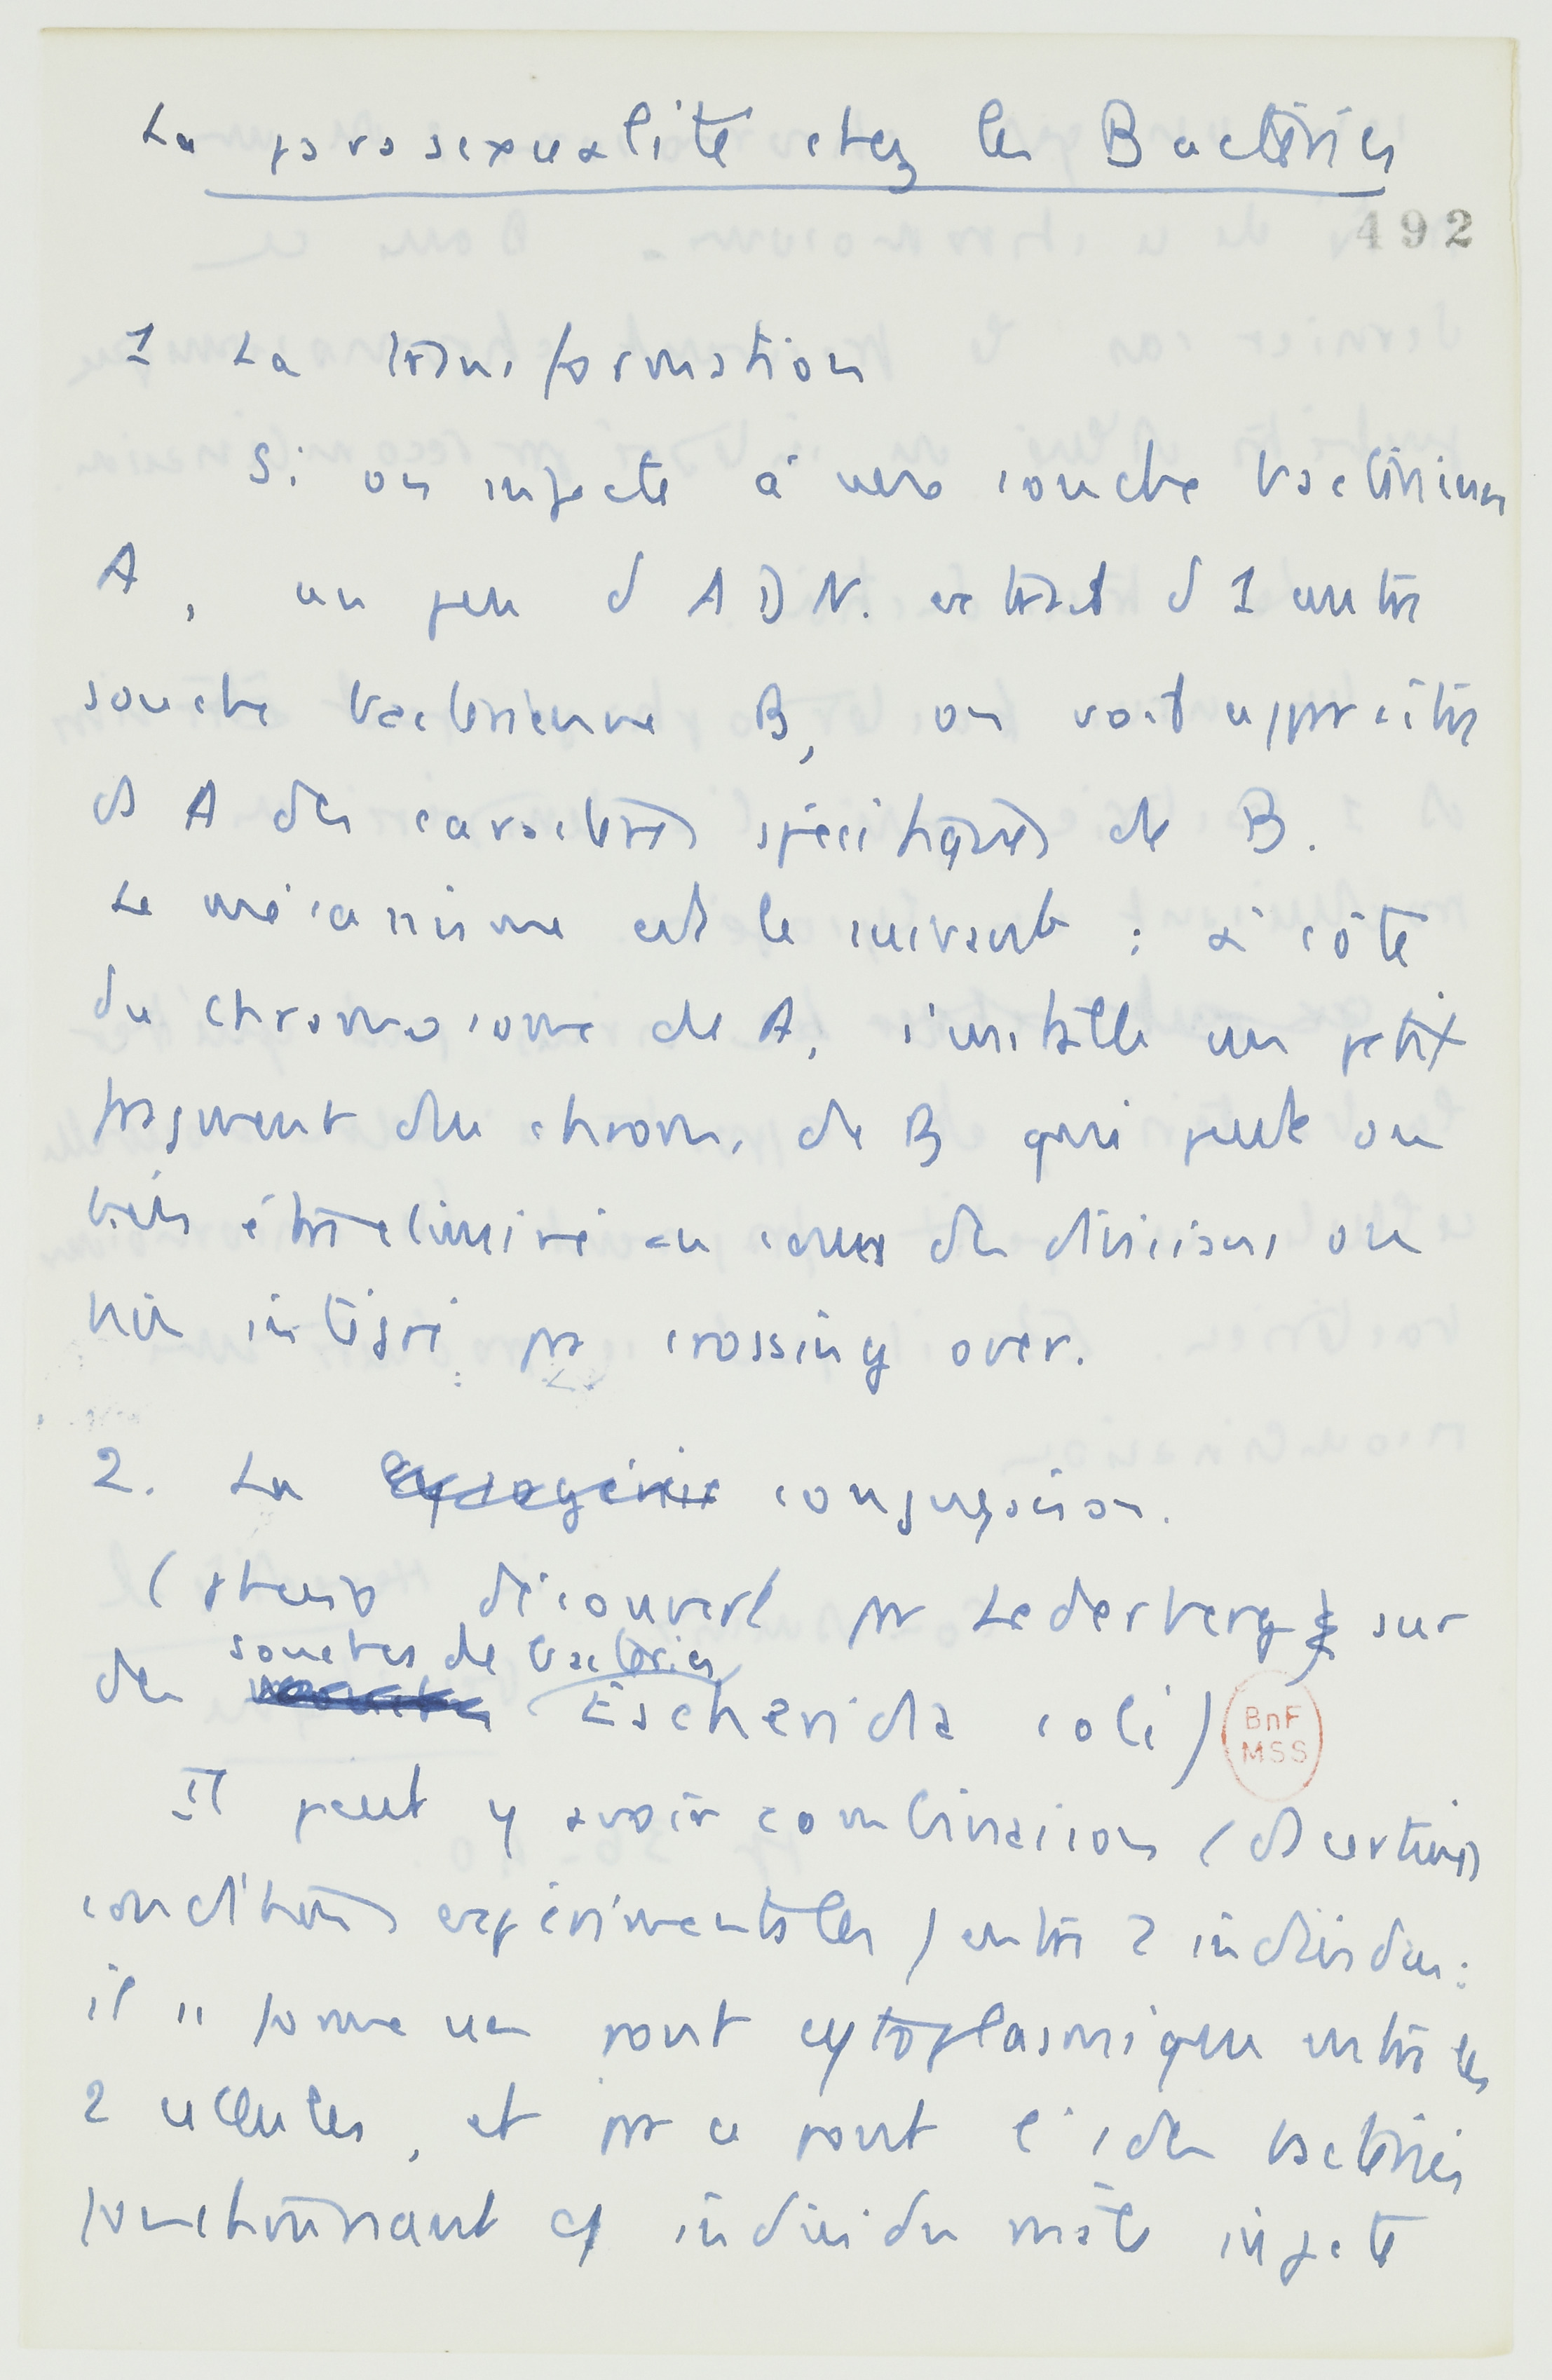 La parasexualité chez les Bactéries
492
1 La transformation
Si on injecte à une souche bactérienne
A, un peu d ADN. extrait d 1 autre
souche bactérienne B, on voit apparaître
ds A des caractères spécifiques de B.
Le mécanisme est le suivant : à côté
du chromosome de A, s'installe un petit
fragment du chrom. de B qui peut ou
bien être éliminé au cours des divisions ou
bien intégré par crossing over.
2. La lysogénie conjugaison.
(phéno découvert par Lederberg sur
souches de bactéries
des Escherichia coli)
BnF
MSS
Il peut y avoir combinaison (ds certaines
conditions expérimentales) entre 2 individus :
il se forme un pont cytoplasmique entre les
2 cellules, et par ce pont l'1 des bactéries
fonctionnant cf individu mâle injecte